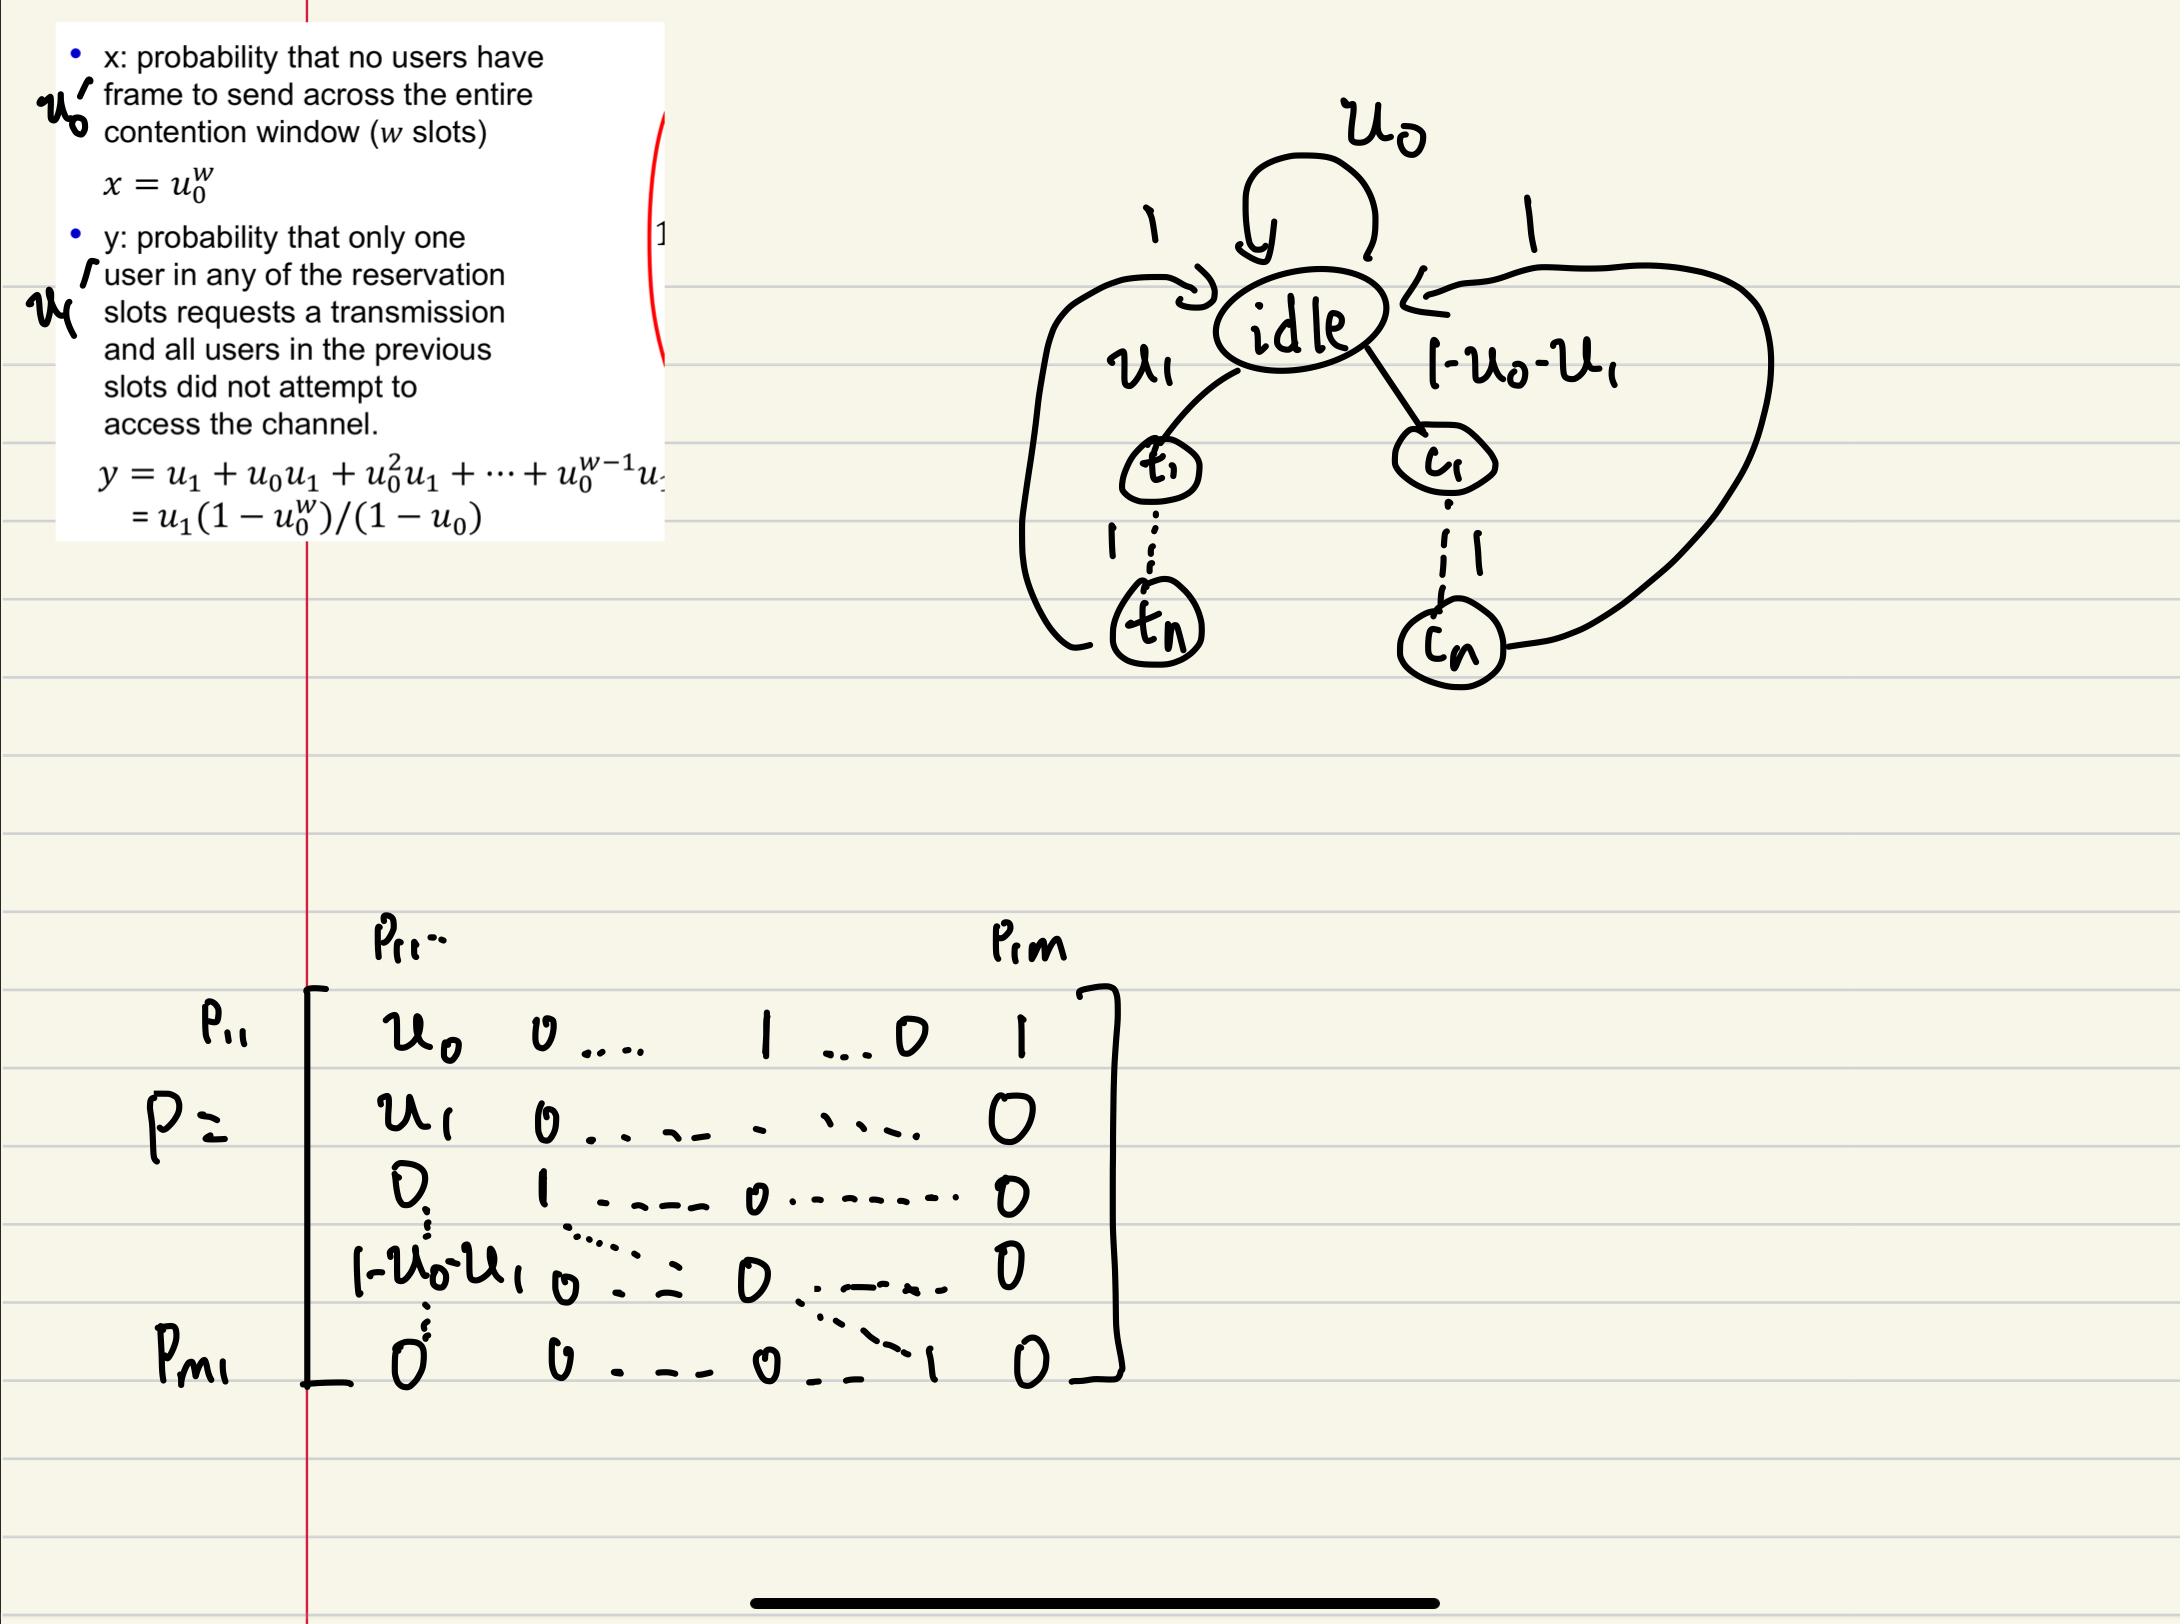 • x: probability that no users have
u₀' frame to send across the entire
contention window (w slots)
x = u₀ʷ
• y: probability that only one
u₁' user in any of the reservation
slots requests a transmission
and all users in the previous
slots did not attempt to
access the channel.
y = u₁ + u₀u₁ + u₀²u₁ + ⋯ + u₀ʷ⁻¹u₁
= u₁(1 − u₀ʷ)/(1 − u₀)
1
u₀
1 1
idle
u₁ 1-u₀-u₁
t₁ c₁
1 1
tn cn
P₁₁-- P₁m
P₁₁ u₀ 0 .... 1 ... 0 1
P = u₁ 0 ........ 0
0 1 ----- 0 ------- 0
1-u₀-u₁ 0 -- 0 ----- 0
Pm₁ 0 0 --- 0 -- 1 0